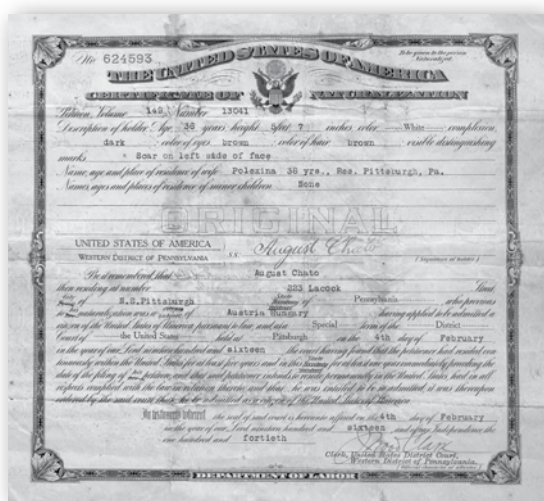 No 624593
To be given to the person Naturalized
THE UNITED STATES OF AMERICA
CERTIFICATE OF NATURALIZATION
Petition, Volume 142 Number 13041
Description of holder: Age, 38 years; height, 5 feet 7 inches; color, White; complexion,
dark; color of eyes, brown; color of hair, brown; visible distinguishing
marks, Scar on left side of face
Name, age and place of residence of wife Polexina 38 yrs., Res. Pittsburgh, Pa.
Names, ages and places of residence of minor children None
ORIGINAL
UNITED STATES OF AMERICA
WESTERN DISTRICT OF PENNSYLVANIA
s.s:
August Chato
(Signature of holder)
Be it remembered, that August Chato
then residing at number 223 Lacock Street
City of N.S.Pittsburgh State of Pennsylvania who previous
to his naturalization was a subject of Austria Hungary having applied to be admitted a
citizen of the United States of America pursuant to law, and at a Special term of the District
Court of the United States held at Pittsburgh on the 4th day of February
in the year of our Lord nineteen hundred and sixteen the court having found that the petitioner had resided con
tinuously within the United States for at least five years and in this State for at least one year immediately preceding the
date of the filing of his petition, and that said petitioner intends to reside permanently in the United States, had in all
respects complied with the law in relation thereto, and that he was entitled to be so admitted, it was thereupon
ordered by the said court that he be admitted as a citizen of the United States of America
In testimony whereof the seal of said court is hereunto affixed on the 4th day of February
in the year of our Lord nineteen hundred and sixteen and of our Independence the
one hundred and fortieth
Clerk, United States District Court,
Western District of Pennsylvania.
DEPARTMENT OF LABOR